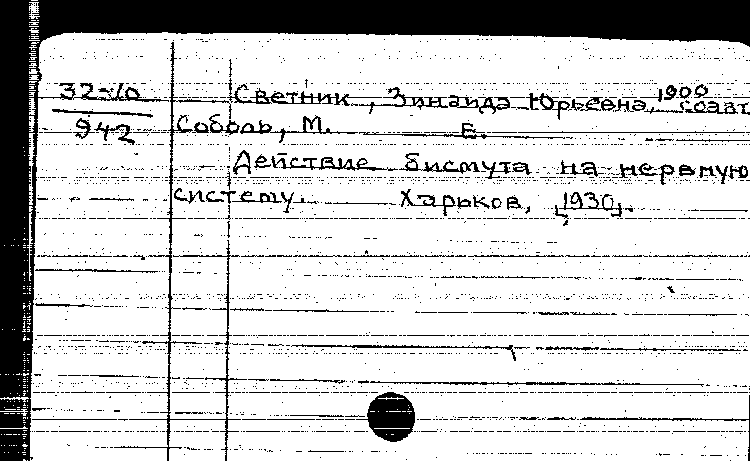 32-10
942
Светник, Зинаида Юрьевна, 1900 соавт
Соболь, М. Е.
Действие бисмута на нервную
систему. Харьков, [1930].